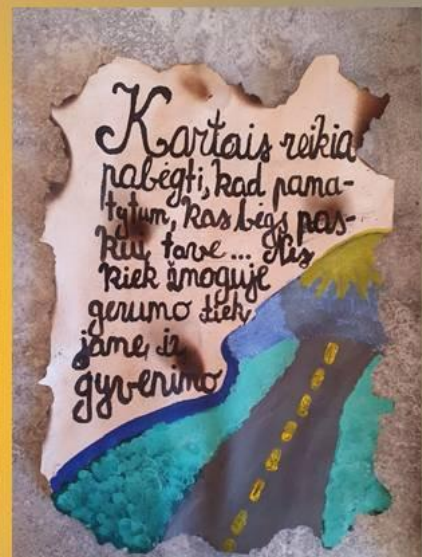 Kartais reikia
pabėgti, kad pama-
tytum, kas bėgs pas-
kui tave... Nes
kiek žmoguje
gerumo tiek
jame ir
gyvenimo